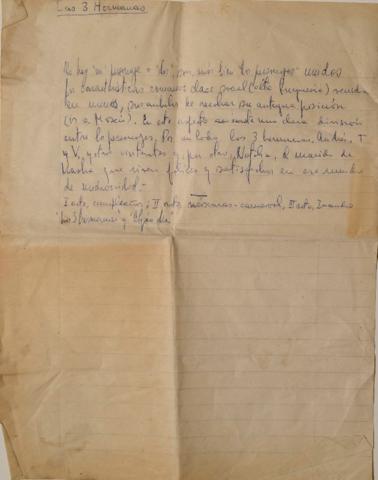 Las 3 Hermanas
No hay "un" personaje o "dos", son más bien los personajes unidos
por características comunes: clase social (alta burguesía) venida
en menos, pero anhelos de recobrar su antigua posición
(ir a Moscú). En este aspecto se nota una clara división
entre los personajes. Por un lado, las 3 hermanas, Andrés, T
y V, y otros visitantes y, por otro, Natasha, el marido de
Masha que viven felices y satisfechos en ese mundo
de mediocridad.-
I acto, cumpleaños; II acto máscaras-carnaval, III acto, Incendio
"Las 3 hermanas" y